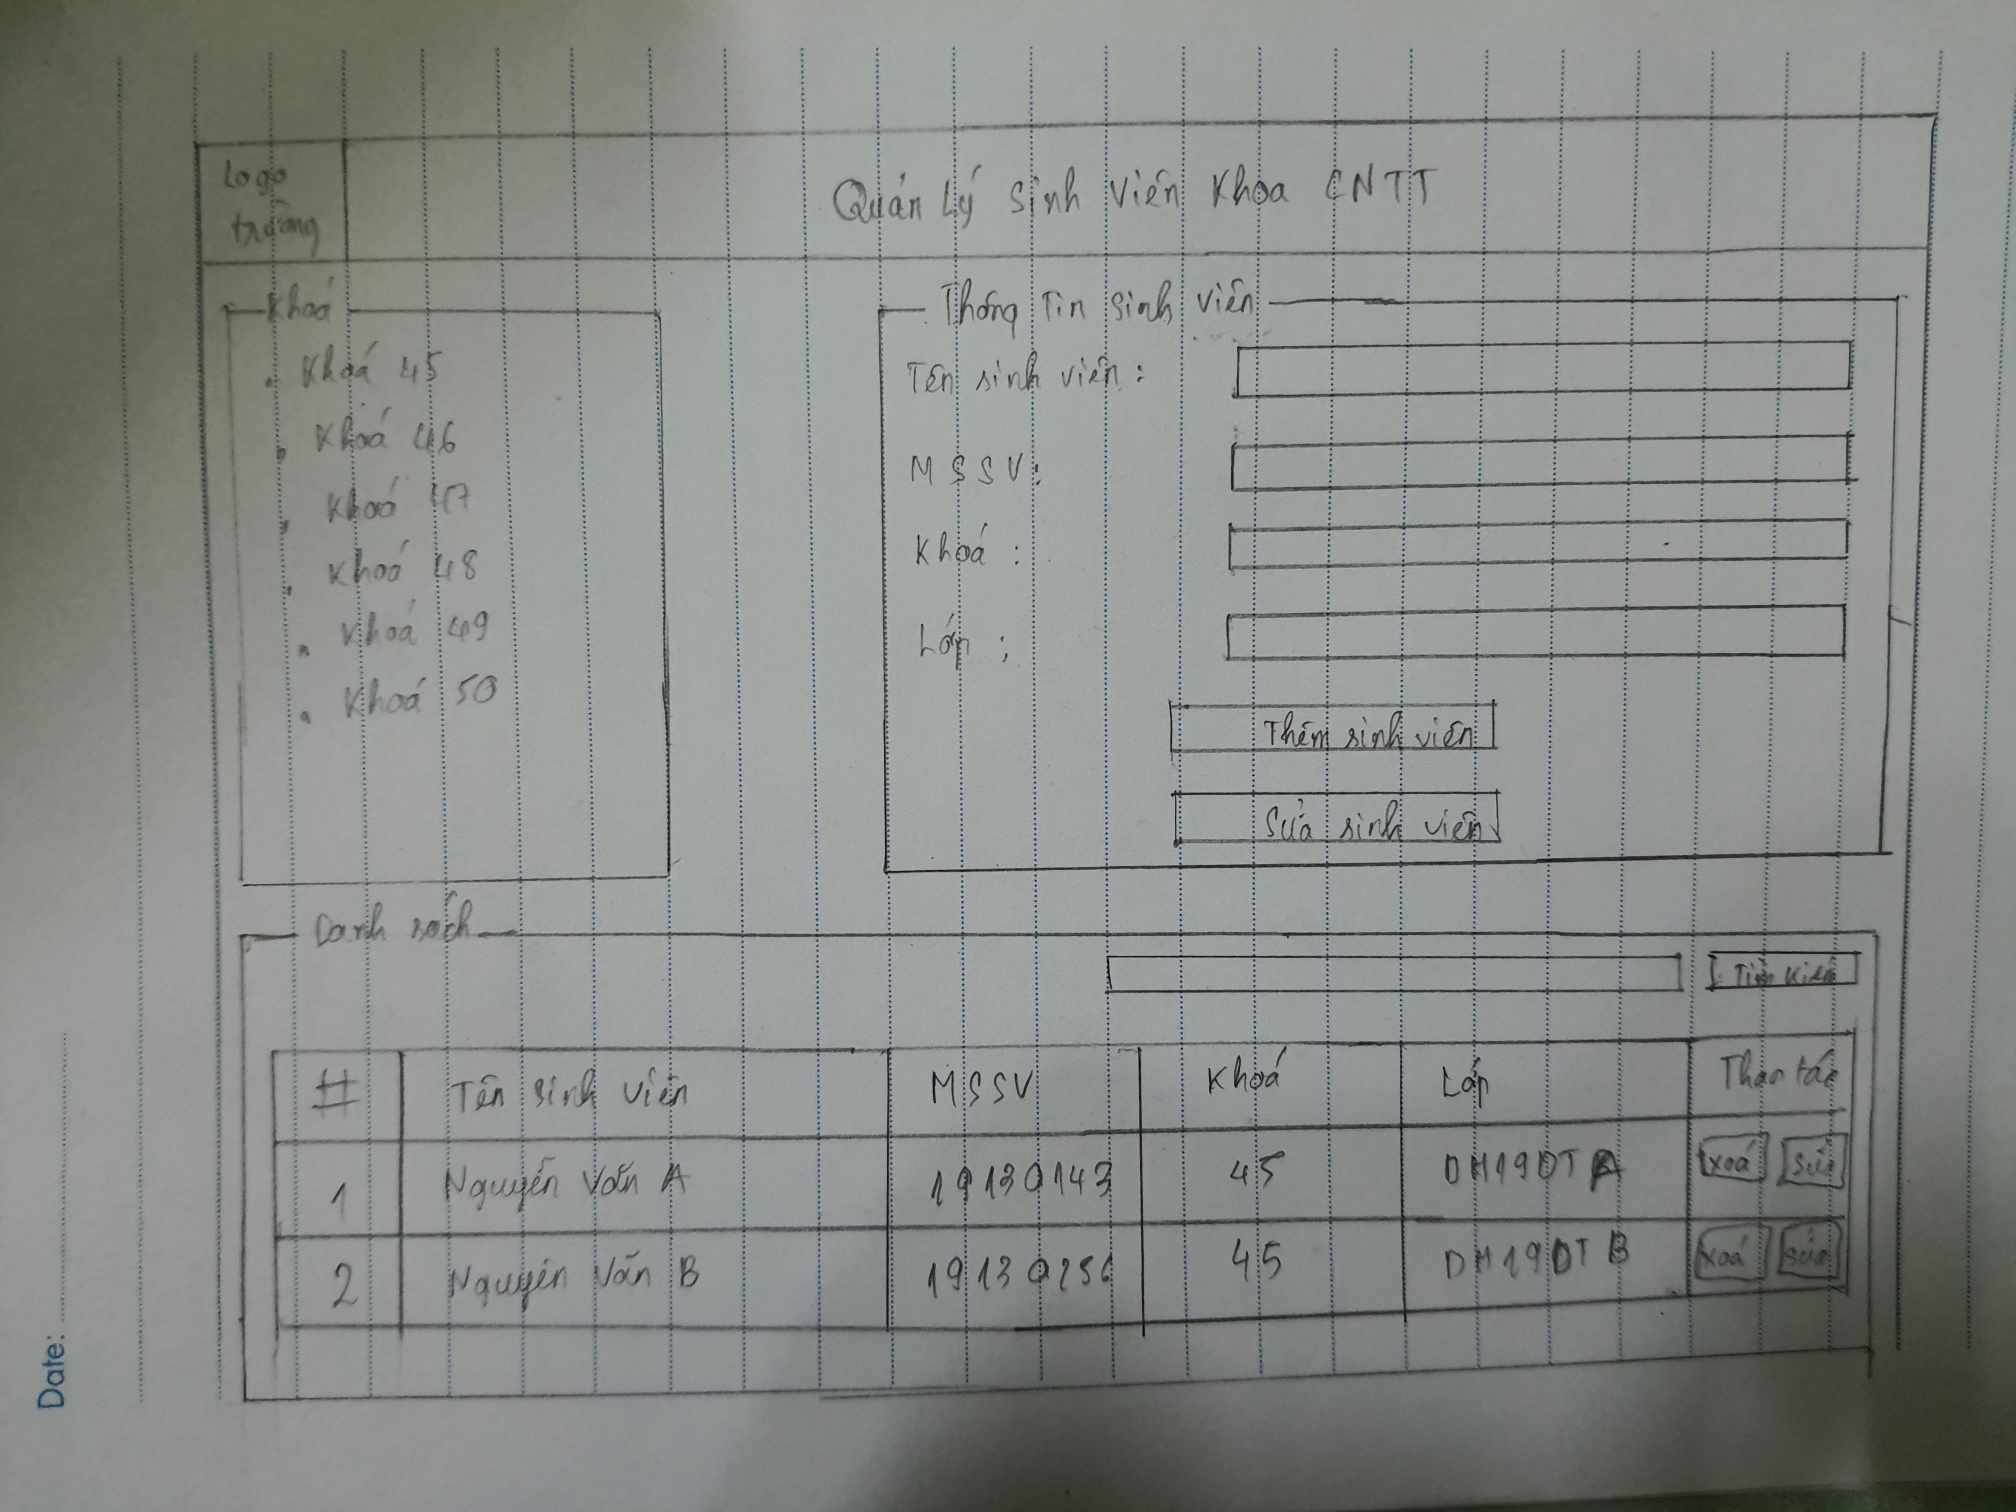 Logo
trường
Quản Lý Sinh Viên Khoa CNTT
Khoá
Khoá 45
Khoá 46
Khoá 47
Khoá 48
Khoá 49
Khoá 50
Thông Tin Sinh viên
Tên sinh viên :
MSSV:
Khoá :
Lớp :
Thêm sinh viên
Sửa sinh viên
Danh sách
Tìm kiếm
# Tên sinh viên MSSV Khoá Lớp Thao tác
1 Nguyễn Văn A 19130143 45 DH19DTA xoá sửa
2 Nguyễn Văn B 19130256 45 DH19DTB xoá sửa
Date: